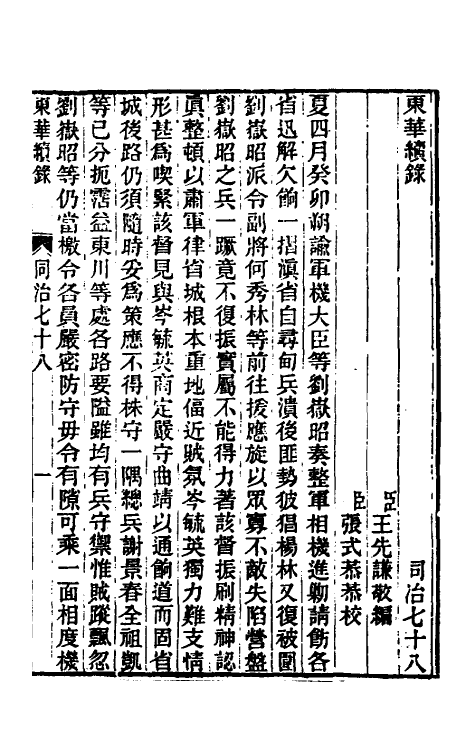 東華續錄　同治七十八
臣王先謙敬編
臣張式恭恭校
夏四月癸卯朔諭軍機大臣等劉嶽昭奏整軍相機進勦請飭各
省迅解欠餉一摺滇省自尋甸兵潰後匪勢彼猖楊林又復被圍
劉嶽昭派令副將何秀林等前往援應旋以眾寡不敵失陷營盤
劉嶽昭之兵一蹶竟不復振實屬不能得力著該督振刷精神認
眞整頓以肅軍律省城根本重地偪近賊氛岑毓英獨力難支情
形甚爲喫緊該督見與岑毓英商定嚴守曲靖以通餉道而固省
城後路仍須隨時妥爲策應不得株守一隅總兵謝景春全祖凱
等已分扼霑益東川等處各路要隘雖均有兵守禦惟賊蹤飄忽
劉嶽昭等仍當檄令各員嚴密防守毋令有隙可乘一面相度機
東華續錄　同治七十八　一